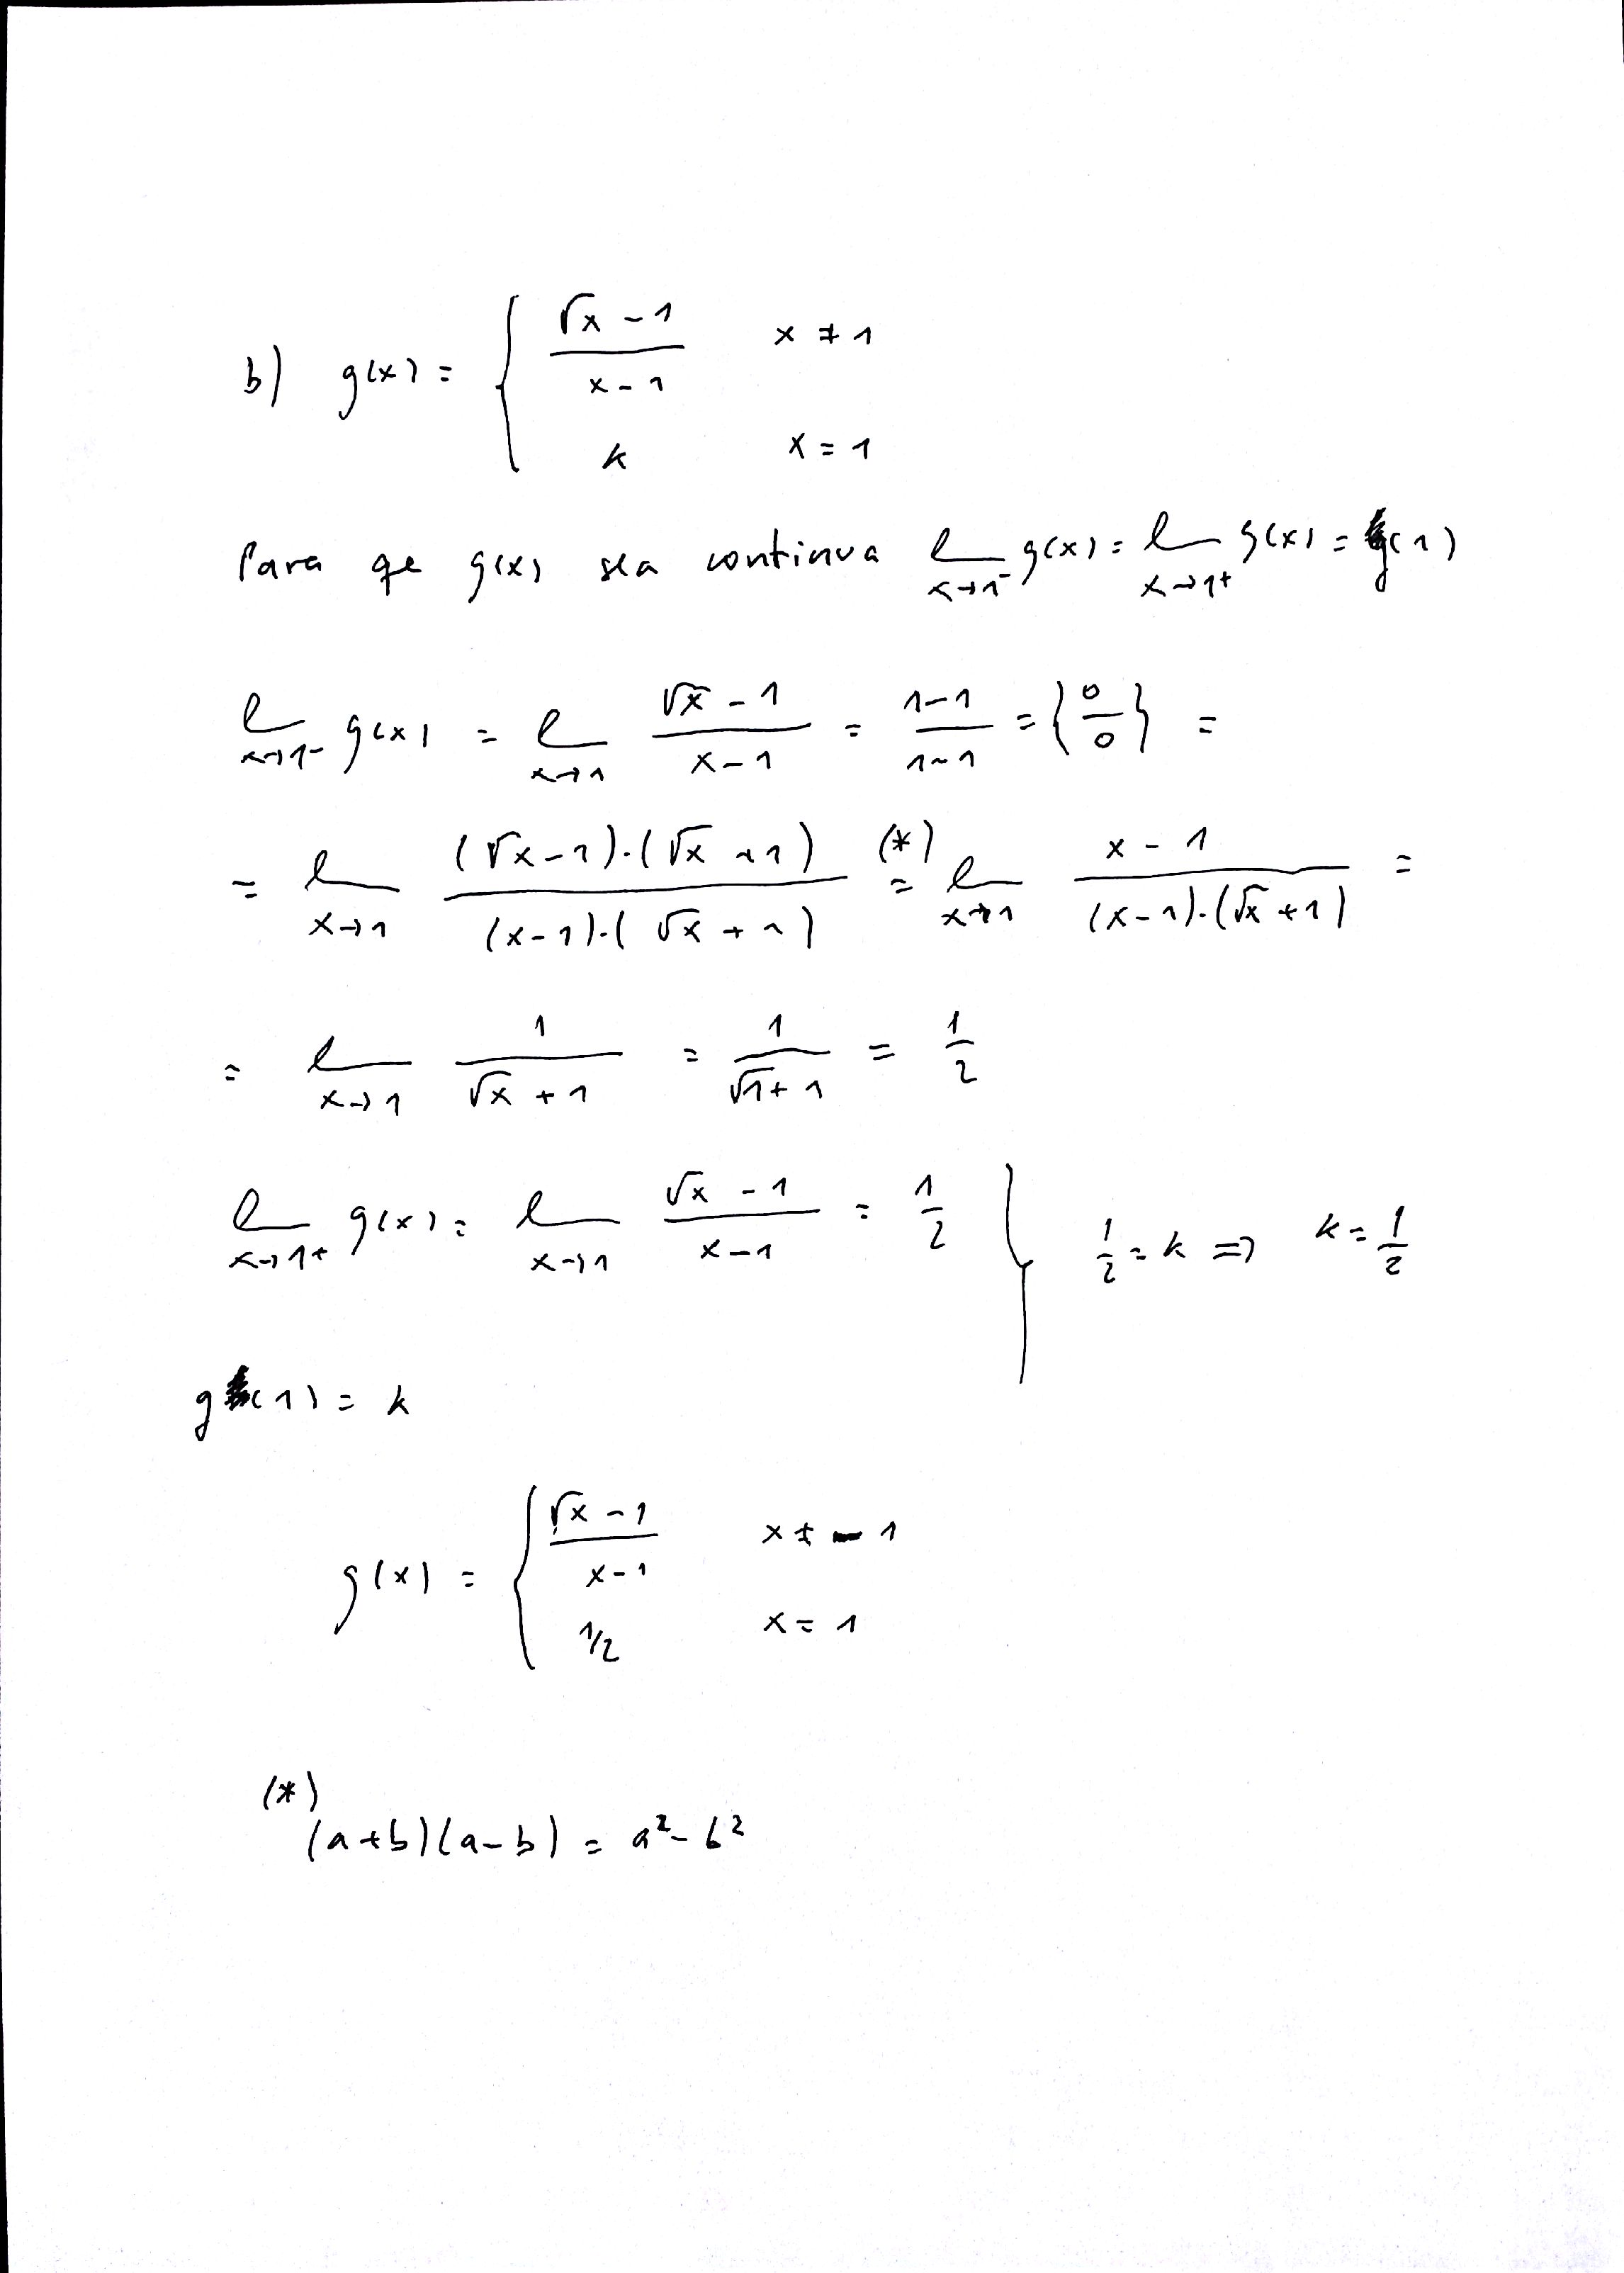 b) g(x) = { (√x - 1)/(x - 1)   x ≠ 1
k   x = 1
Para qe g(x) sea continua lim x→1⁻ g(x) = lim x→1⁺ g(x) = g(1)
lim x→1⁻ g(x) = lim x→1 (√x - 1)/(x - 1) = (1-1)/(1-1) = {0/0} =
= lim x→1 ((√x - 1)·(√x + 1))/((x - 1)·(√x + 1)) (*)= lim x→1 (x - 1)/((x - 1)·(√x + 1)) =
= lim x→1 1/(√x + 1) = 1/(√1 + 1) = 1/2
lim x→1⁺ g(x) = lim x→1 (√x - 1)/(x - 1) = 1/2 } 1/2 = k ⇒ k = 1/2
g(1) = k
g(x) = { (√x - 1)/(x - 1)   x ≠ 1
1/2   x = 1
(*)
(a+b)(a-b) = a² - b²